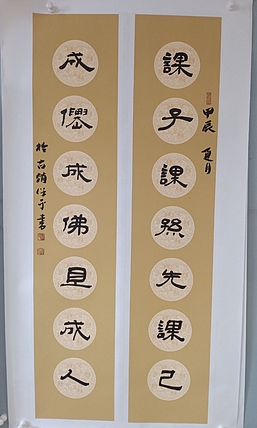 課子課孫先課己
甲辰 夏月
成僊成佛且成人
於古
書